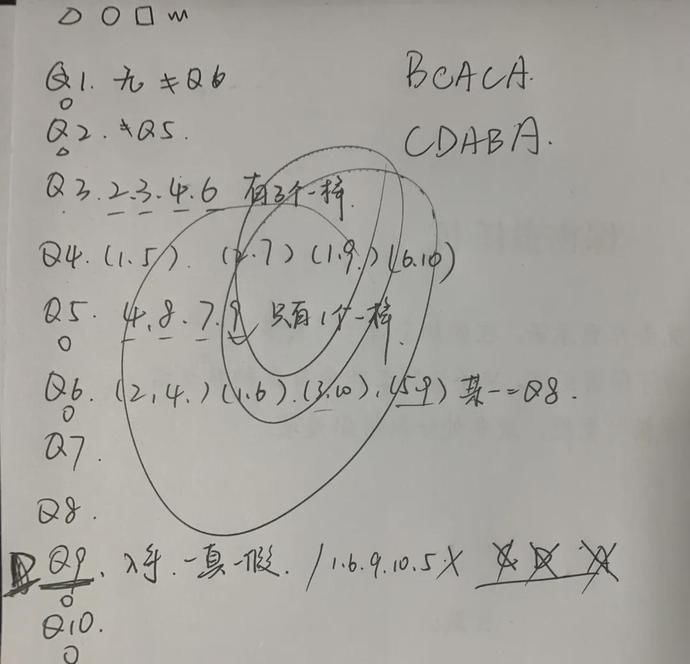 Q1. 无 ≠Q6
BCACA.
Q2. ≠Q5.
CDABA.
Q3. 2.3.4.6 有3个一样.
Q4. (1.5). (2.7) (1.9.) (6.10)
Q5. 4.8.7.9 只有1个一样.
Q6. (2,4.) (1.6). (3.10). (5.9) 某一=Q8.
Q7.
Q8.
Q9. 一真一假. / 1.6.9.10.5 X
Q10.